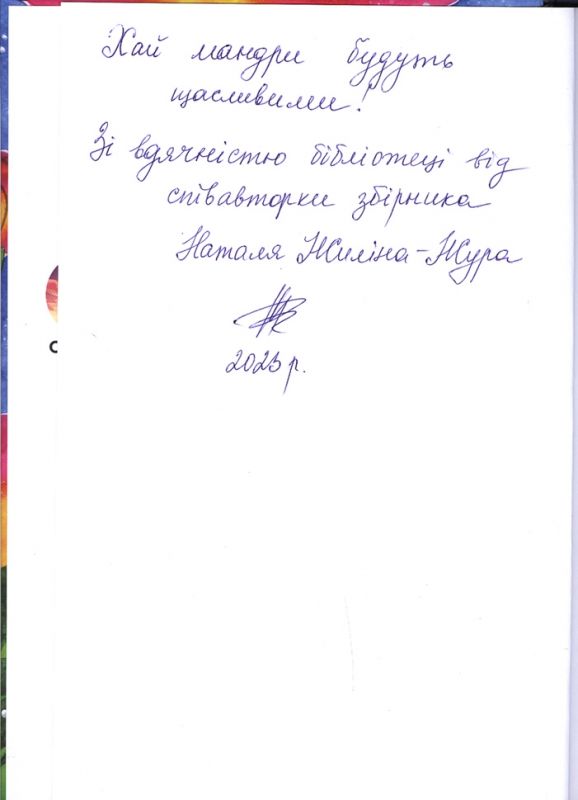 Хай мандри будуть
щасливими!
Зі вдячністю бібліотеці від
співавторки збірника
Наталя Жиліна-Жура
2023 р.